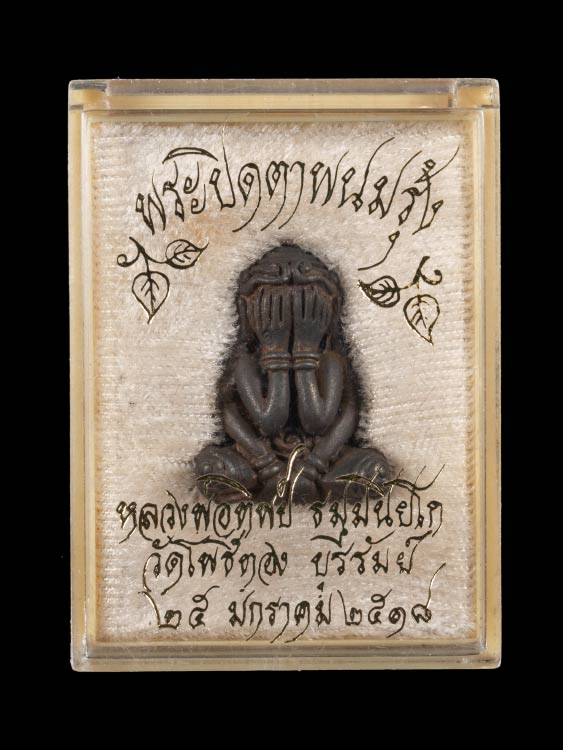 พระปิดตาพนมรุ้ง
หลวงพ่อทิพย์ ธมฺมนิโยโก
วัดโพธิ์ทอง บุรีรัมย์
๒๕ มกราคม ๒๕๑๘